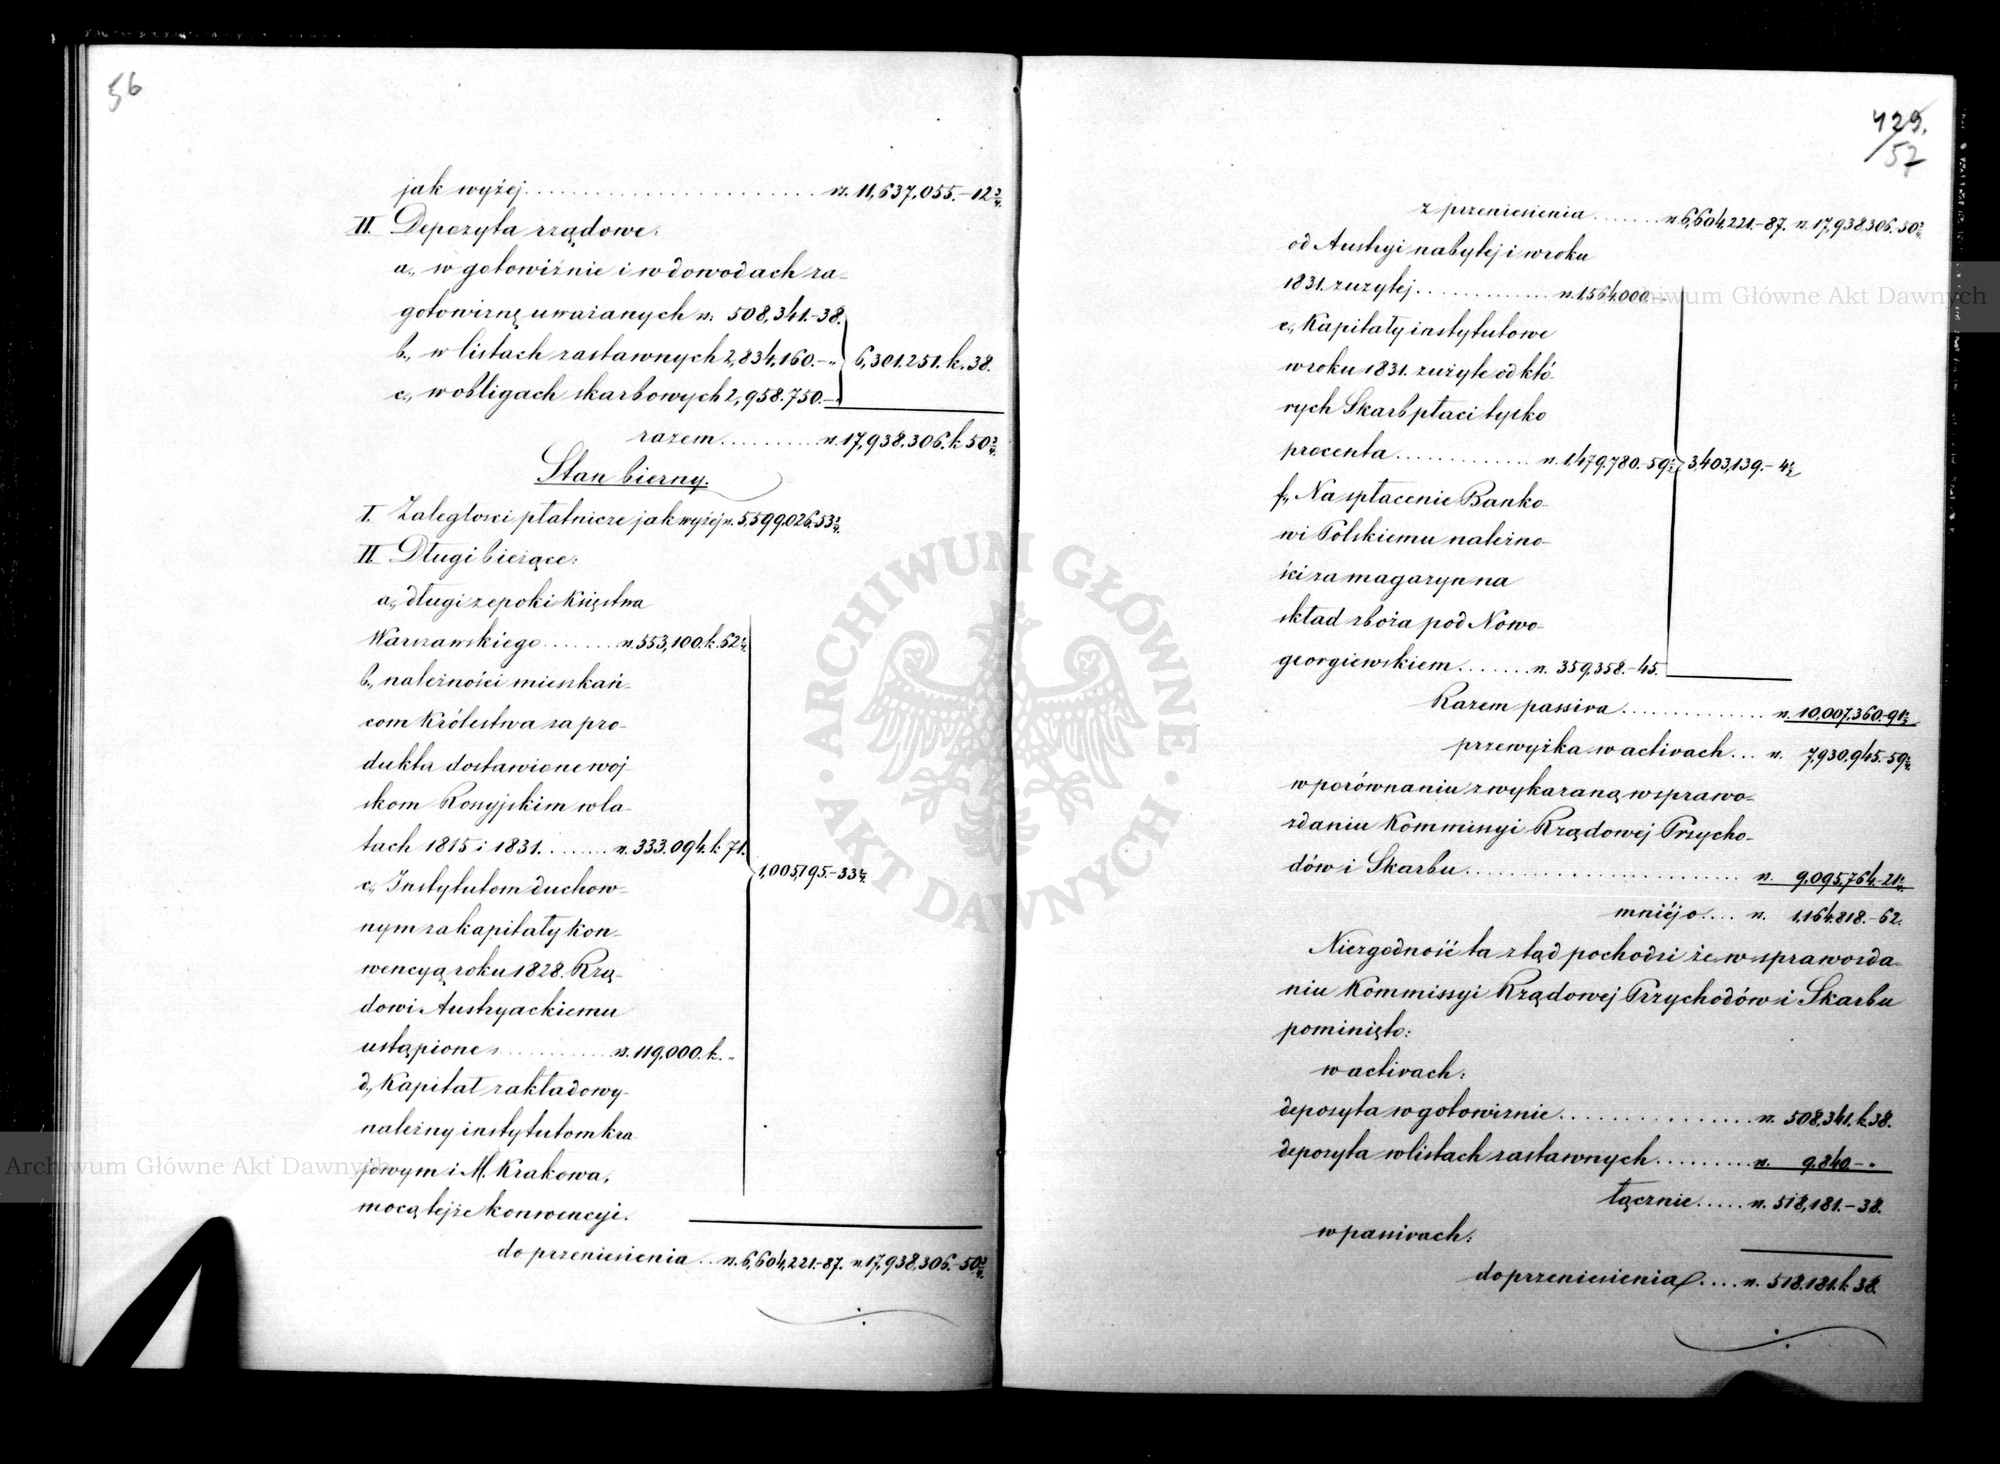 56
jak wyżej . . . . . . . . . . rs. 11,637,055.-12 3/4.
II. Depozyta rządowe:
a., w gotowiźnie i w dowodach za-
gotowiznę uważanych rs. 508,341.-38.
b., w listach zastawnych 2,834,160.-" 6,301.251. k. 38.
c., w obligach skarbowych 2,958.750.-"
razem . . . . . . . . . rs. 17,938.306. k 50 3/4.
Stan bierny.
I. Zaległości płatnicze jak wyżej rs. 5,599,026.-53 3/4.
II. Długi bieżące:
a., długi z epoki Księstwa
Warszawskiego . . . . . . . rs. 553,100. k. 62 1/4.
b., należności mieszkań-
com Królestwa za pro-
dukta dostawione woj-
skom Rossyjskim w la-
tach 1815 i 1831. . . . . . . rs. 333.094. k. 71.
1,005,195.-33 1/4.
c., Instytutom duchow-
nym za kapitały kon-
wencyą roku 1828. Rzą-
dowi Austryackiemu
ustąpione . . . . . . . . . rs. 119,000. k. "
d., Kapitał zakładowy
należny instytutom kra-
jowym i M. Krakowa,
mocą tejże konwencyi.
do przeniesienia . . rs. 6,604,221.-87. rs. 17,938,306.-50 3/4.
429.
57
z przeniesienia . . . . . . . rs. 6,604,221.-87. rs. 17,938306.-50 3/4.
od Austryi nabytej i w roku
1831. zużytej . . . . . . . . . . rs. 1.564.000.-"
e., Kapitały instytutowe
w roku 1831. zużyte od któ-
rych Skarb płaci tylko
procenta . . . . . . . . . . . rs. 1,479,780.-59 1/2. 3,403,139.-4 1/2
f., Na spłacenie Banko-
wi Polskiemu należno-
ści za magazyn na
skład zboża pod Nowo-
georgiewskiem . . . . . . rs. 359,358.-45.
Razem passiva . . . . . . . . . . . . rs. 10,007,360.-91 1/2
przewyżka w activach . . . rs. 7,930,945.-59 1/4.
w porównaniu z wykazaną w sprawo-
zdaniu Kommissyi Rządowej Przycho-
dów i Skarbu . . . . . . . . . . . . . . . . . . . . . . . rs. 9,095,764.-21 1/4.
mniéj o . . . . rs. 1,164.818.-62.
Niezgodność ta ztąd pochodzi że w sprawozda-
niu Kommissyi Rządowej Przychodów i Skarbu
pominięto:
w activach:
depozyta w gotowiznie . . . . . . . . . . . . . . . . rs. 508,341. k. 38.
depozyta w listach zastawnych . . . . . . . . . rs. 9.840.-"
łącznie . . . . . rs. 518,181.-38.
w passivach:
do przeniesienia . . . . rs. 518.181. k 38.
ARCHIWUM GŁÓWNE AKT DAWNYCH
Archiwum Główne Akt Dawnych
Archiwum Główne Akt Dawnych